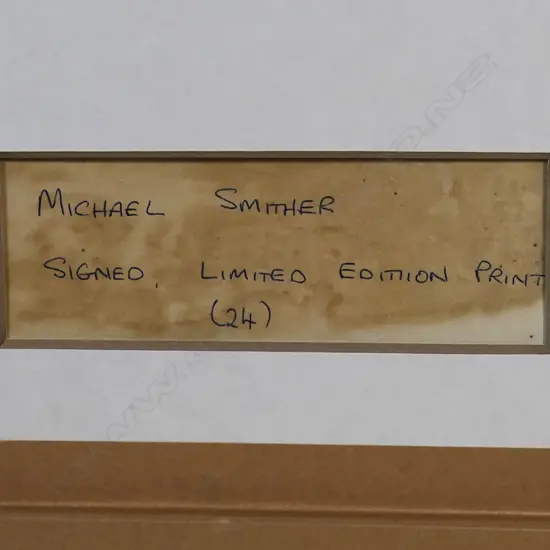 MICHAEL SMITHER
SIGNED, LIMITED EDITION PRINT
(24)